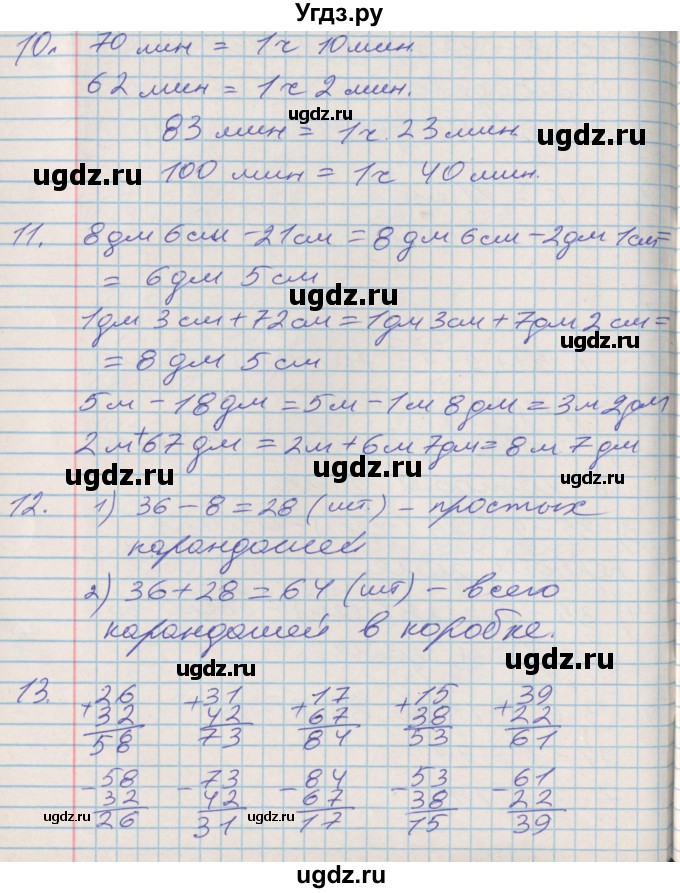 Угдз.ру
10. 70 мин = 1ч 10мин.
62 мин = 1ч 2 мин.
ugdz.ru
83 мин = 1ч. 23мин.
ugdz.ru
ugdz.ru
100 мин = 1ч 40мин.
11. 8дм 6см - 21см = 8 дм 6см - 2дм 1см=
= 6дм 5см
ugdz.ru
1дм 3см + 72см = 1дм 3см + 7дм 2см =
ugdz.ru
= 8 дм 5см
5м - 18дм = 5м - 1м 8дм = 3м 2дм
2м + 67дм = 2м + 6м 7дм = 8м 7дм
ugdz.ru
ugdz.ru
12. 1) 36 - 8 = 28 (шт.) - простых
карандашей
2) 36 + 28 = 64 (шт) - всего
карандашей в коробке.
ugdz.ru
ugdz.ru
13. +26 +31 +17 +15 +39
32 42 67 38 22
58 73 84 53 61
ugdz.ru
-58 -73 -84 -53 -61
32 42 67 38 22
26 31 17 15 39
ugdz.ru ugdz.ru ugdz.ru
ugdz.ru